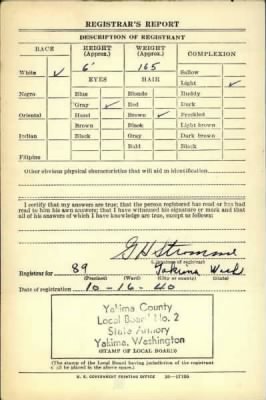 REGISTRAR'S REPORT
DESCRIPTION OF REGISTRANT
RACE HEIGHT (Approx.) WEIGHT (Approx.) COMPLEXION
White ✓ 6' 165 Sallow
EYES HAIR Light ✓
Negro Blue Blonde Ruddy
Gray ✓ Red Dark
Oriental Hazel Brown ✓ Freckled
Brown Black Light brown
Indian Black Gray Dark brown
Bald Black
Filipino
Other obvious physical characteristics that will aid in identification
I certify that my answers are true; that the person registered has read or has had
read to him his own answers; that I have witnessed his signature or mark and that
all of his answers of which I have knowledge are true, except as follows:
(Signature of registrar)
Registrar for 89 Yakima Wash
(Precinct) (Ward) (City or county)
Date of registration 10-16-40
Yakima County
Local Board No. 2
State Armory
Yakima, Washington
(STAMP OF LOCAL BOARD)
(The stamp of the Local Board having jurisdiction of the registrant
shall be placed in the above space.)
U. S. GOVERNMENT PRINTING OFFICE